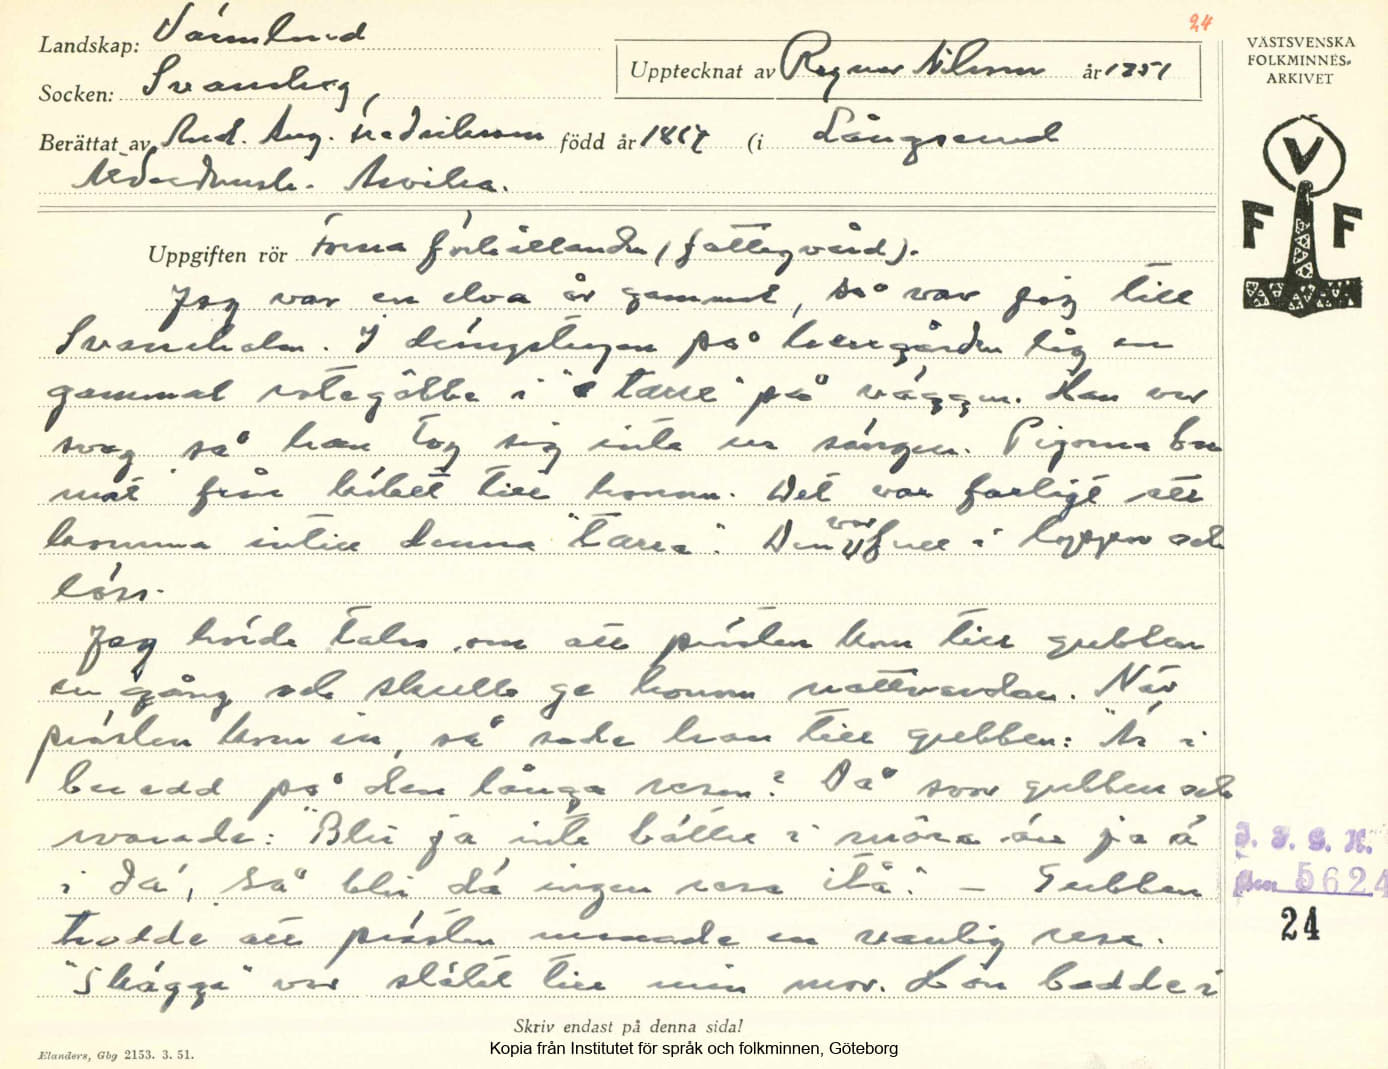 24
Landskap: Värmland
VÄSTSVENSKA
FOLKMINNES-
ARKIVET
Upptecknat av Ragnar Nilsson år 1951
Socken: Svanskog,
Berättat av Rud. Aug. Fredriksson född år 18 (i Långserud
Arvika.
V
F F
Uppgiften rör Forna förhållanden (fattigvård).
Jag var en elva år gammal, så var jag till
Svaneholm. I drängstugan på herrgården låg en
gammal rotegôbbe i "tarre" på väggen. Han var
svag så han tog sig inte ur sängen. Pigorna bar
mat från köket till honom. Det var farligt att
komma intill denna "tarre". Den var full i loppor och
löss.
Jag hörde talas om att prästen kom till gubben
en gång och skulle ge honom nattvarden. När
prästen kom in, så sade han till gubben: "Är i
beredd på den långa resan? Då svor gubben och
svarade: "Blir ja inte bätter i môra än ja ä
i da', så blir dä ingen resa itå". – Gubben
trodde att prästen menade en vanlig resa.
"Skägga" var släkt till min mor. Hon bodde i
I. F. G. H.
5624
24
Skriv endast på denna sida!
Elanders, Gbg 2153. 3. 51.
Kopia från Institutet för språk och folkminnen, Göteborg